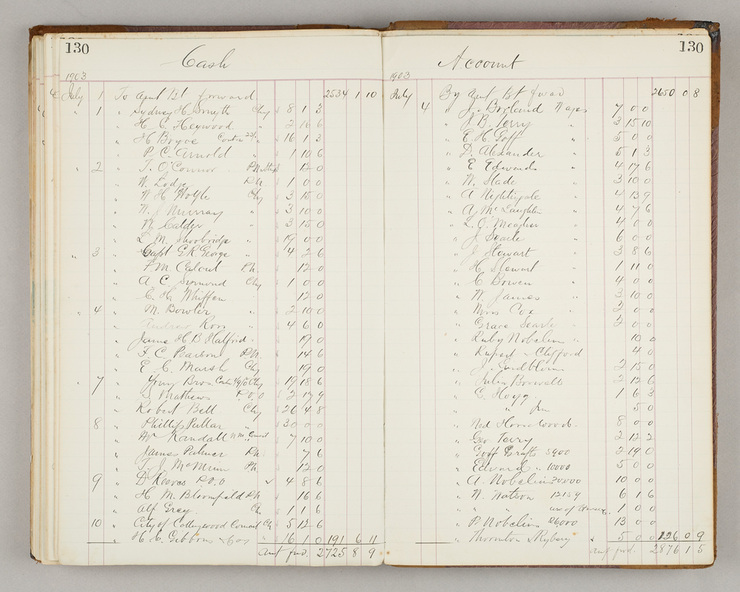 130
Cash
1903
July 1 To Amt brt forward 2534 1 10
" 1 " Sydney H. Smyth Chq 8 1 3
" H. C. Heywood " 2 16 6
" H Boyce " 16 1 3
" P. C. Arnold " 1 10 6
" 2 " T. O'Connor 12 0
" W. Lodge P.N. 1 0 0
" W H Wolfe Chq 3 15 0
" W. J Murray " 3 10 0
" W. Calder " 3 15 0
" L. M. Shoobridge " 19 0 0
" 3 " Capt. G. R. George " 4 2 6
" F. M. P.N. 12 0
" A C. Chq 1 0 0
" C. H. Whiffen " 12 0
" 4 " M. Bowler " 2 10 0
" Andrew Ross " 4 6 0
" James H B Walford " 19 0
" F. C. Pearson P.N. 14 6
" E. C. Marsh Chq 19 0
" 7 " Henry Bros 19 18 6
" Mathews P.O.O 2 17 9
" Robert Bell Chq 26 4 8
8 " Phillips Pallar " 30 0 0
" Mr Randall 7 10 0
" James Palmer P.N. 7 6
" T. J. McMinn P.N. 12 0
9 " D. Reeves P.O.O 4 8 6
" H. M. Bloomfield P.N. 16 6
" Alf Gray Ch 1 1 6
10 " City of Collingwood Council Ch 5 12 6
" H. C. Gibbons & Cos " 16 1 0 191 6 11
Amt fwd. 2725 8 9
130
Account
1903
July By Amt brt fwd 2650 0 8
4 " J. Borland Wages 7 0 0
" J. B. Terry " 3 15 10
" E. H. Goff " 5 0 0
" D. Alexander " 5 1 3
" E Edwards " 4 17 6
" W. Slade " 3 10 0
" A Nightingale " 4 13 9
" A McLaughlin " 4 7 6
" L. G. Meagher " 4 0 0
" J. Searle " 6 0 0
" J Stewart " 3 8 6
" H Stewart " 1 11 0
" C Bowen " 4 0 0
" W James " 3 10 0
" Miss Coe " 2 0 0
" Grace Searle " 2 0 0
" Ruby Nobelius " 10 0
" Rupert " Clifford 4 0
" J. Lindblom 2 15 0
" Julius Boswell 2 12 6
" C Hogg 1 6 3
" " Jun 5 0
" Ned Horne wood 8 0 0
" Geo Terry 2 12 2
" Goff Grafts 5900 2 19 0
" Edward " 10000 5 0 0
" A. Nobelius 20000 10 0 0
" N. Watson 12154 6 1 6
" " use of 1 0 0
" P. Nobelius 26000 13 0 0
" Thornton 5 0 0 126 0 9
Amt fwd. 2876 1 5